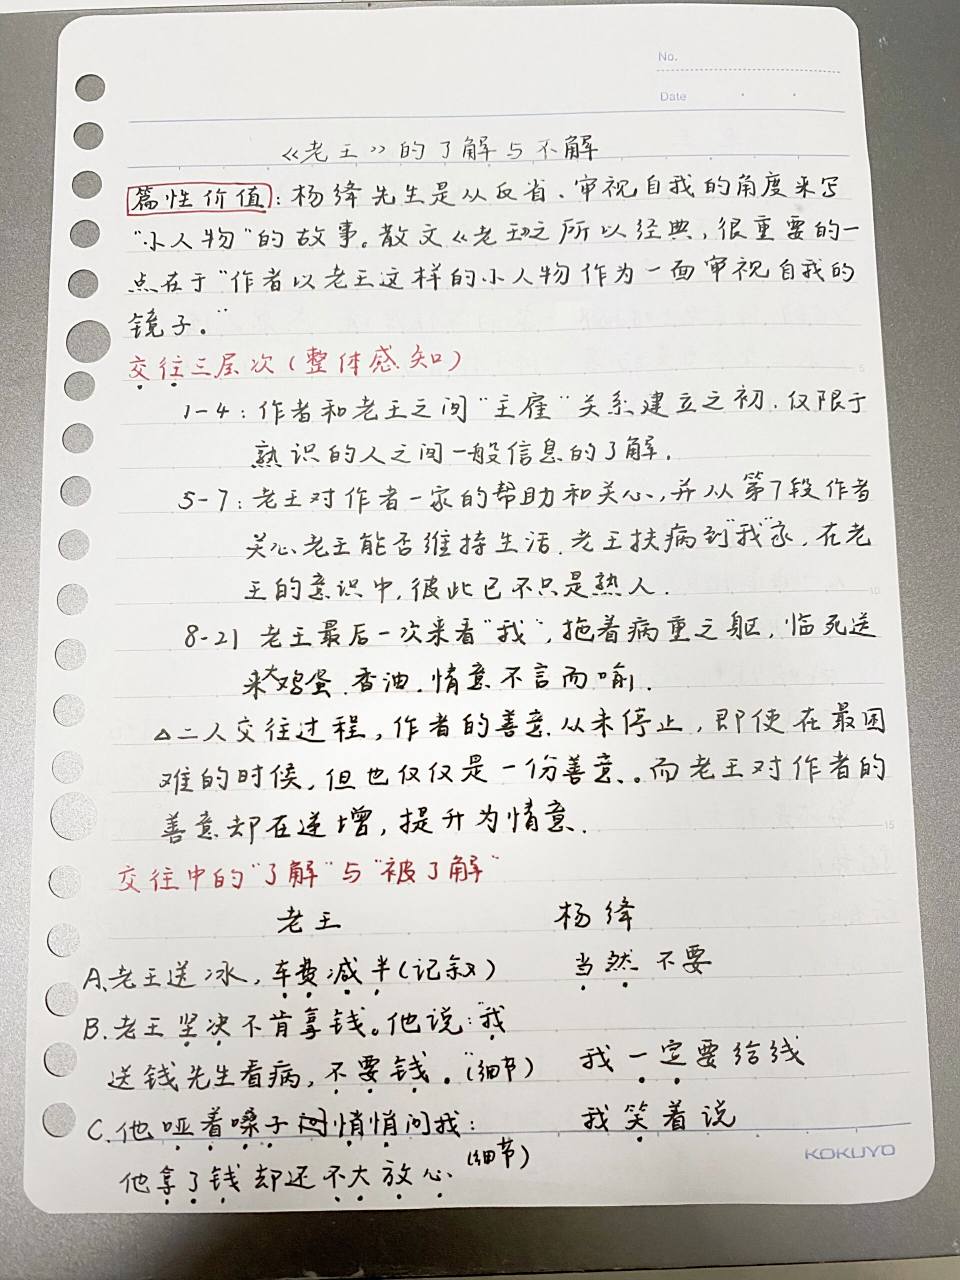 No.
Date
《老王》的了解与不解
篇性价值：杨绛先生是从反省、审视自我的角度来写
"小人物"的故事。散文《老王》之所以经典，很重要的一
点在于"作者以老王这样的小人物作为一面审视自我的
镜子。"
交往三层次(整体感知)
1-4：作者和老王之间"主雇"关系建立之初，仅限于
熟识的人之间一般信息的了解.
5-7：老王对作者一家的帮助和关心，并从第7段作者
关心老王能否维持生活，老王扶病到"我"家，在老
王的意识中，彼此已不只是熟人.
8-21 老王最后一次来看"我"，拖着病重之躯，临死送
来大鸡蛋、香油，情意不言而喻.
△二人交往过程，作者的善意从未停止，即使在最困
难的时候，但也仅仅是一份善意。而老王对作者的
善意却在递增，提升为情意.
交往中的"了解"与"被了解"
老王 杨绛
A.老王送冰，车费减半(记叙) 当然不要
B.老王坚决不肯拿钱。他说："我
送钱先生看病，不要钱。"(细节) 我一定要给钱
C.他哑着嗓子悄悄问我： 我笑着说
他拿了钱却还不大放心(细节)
KOKUYO